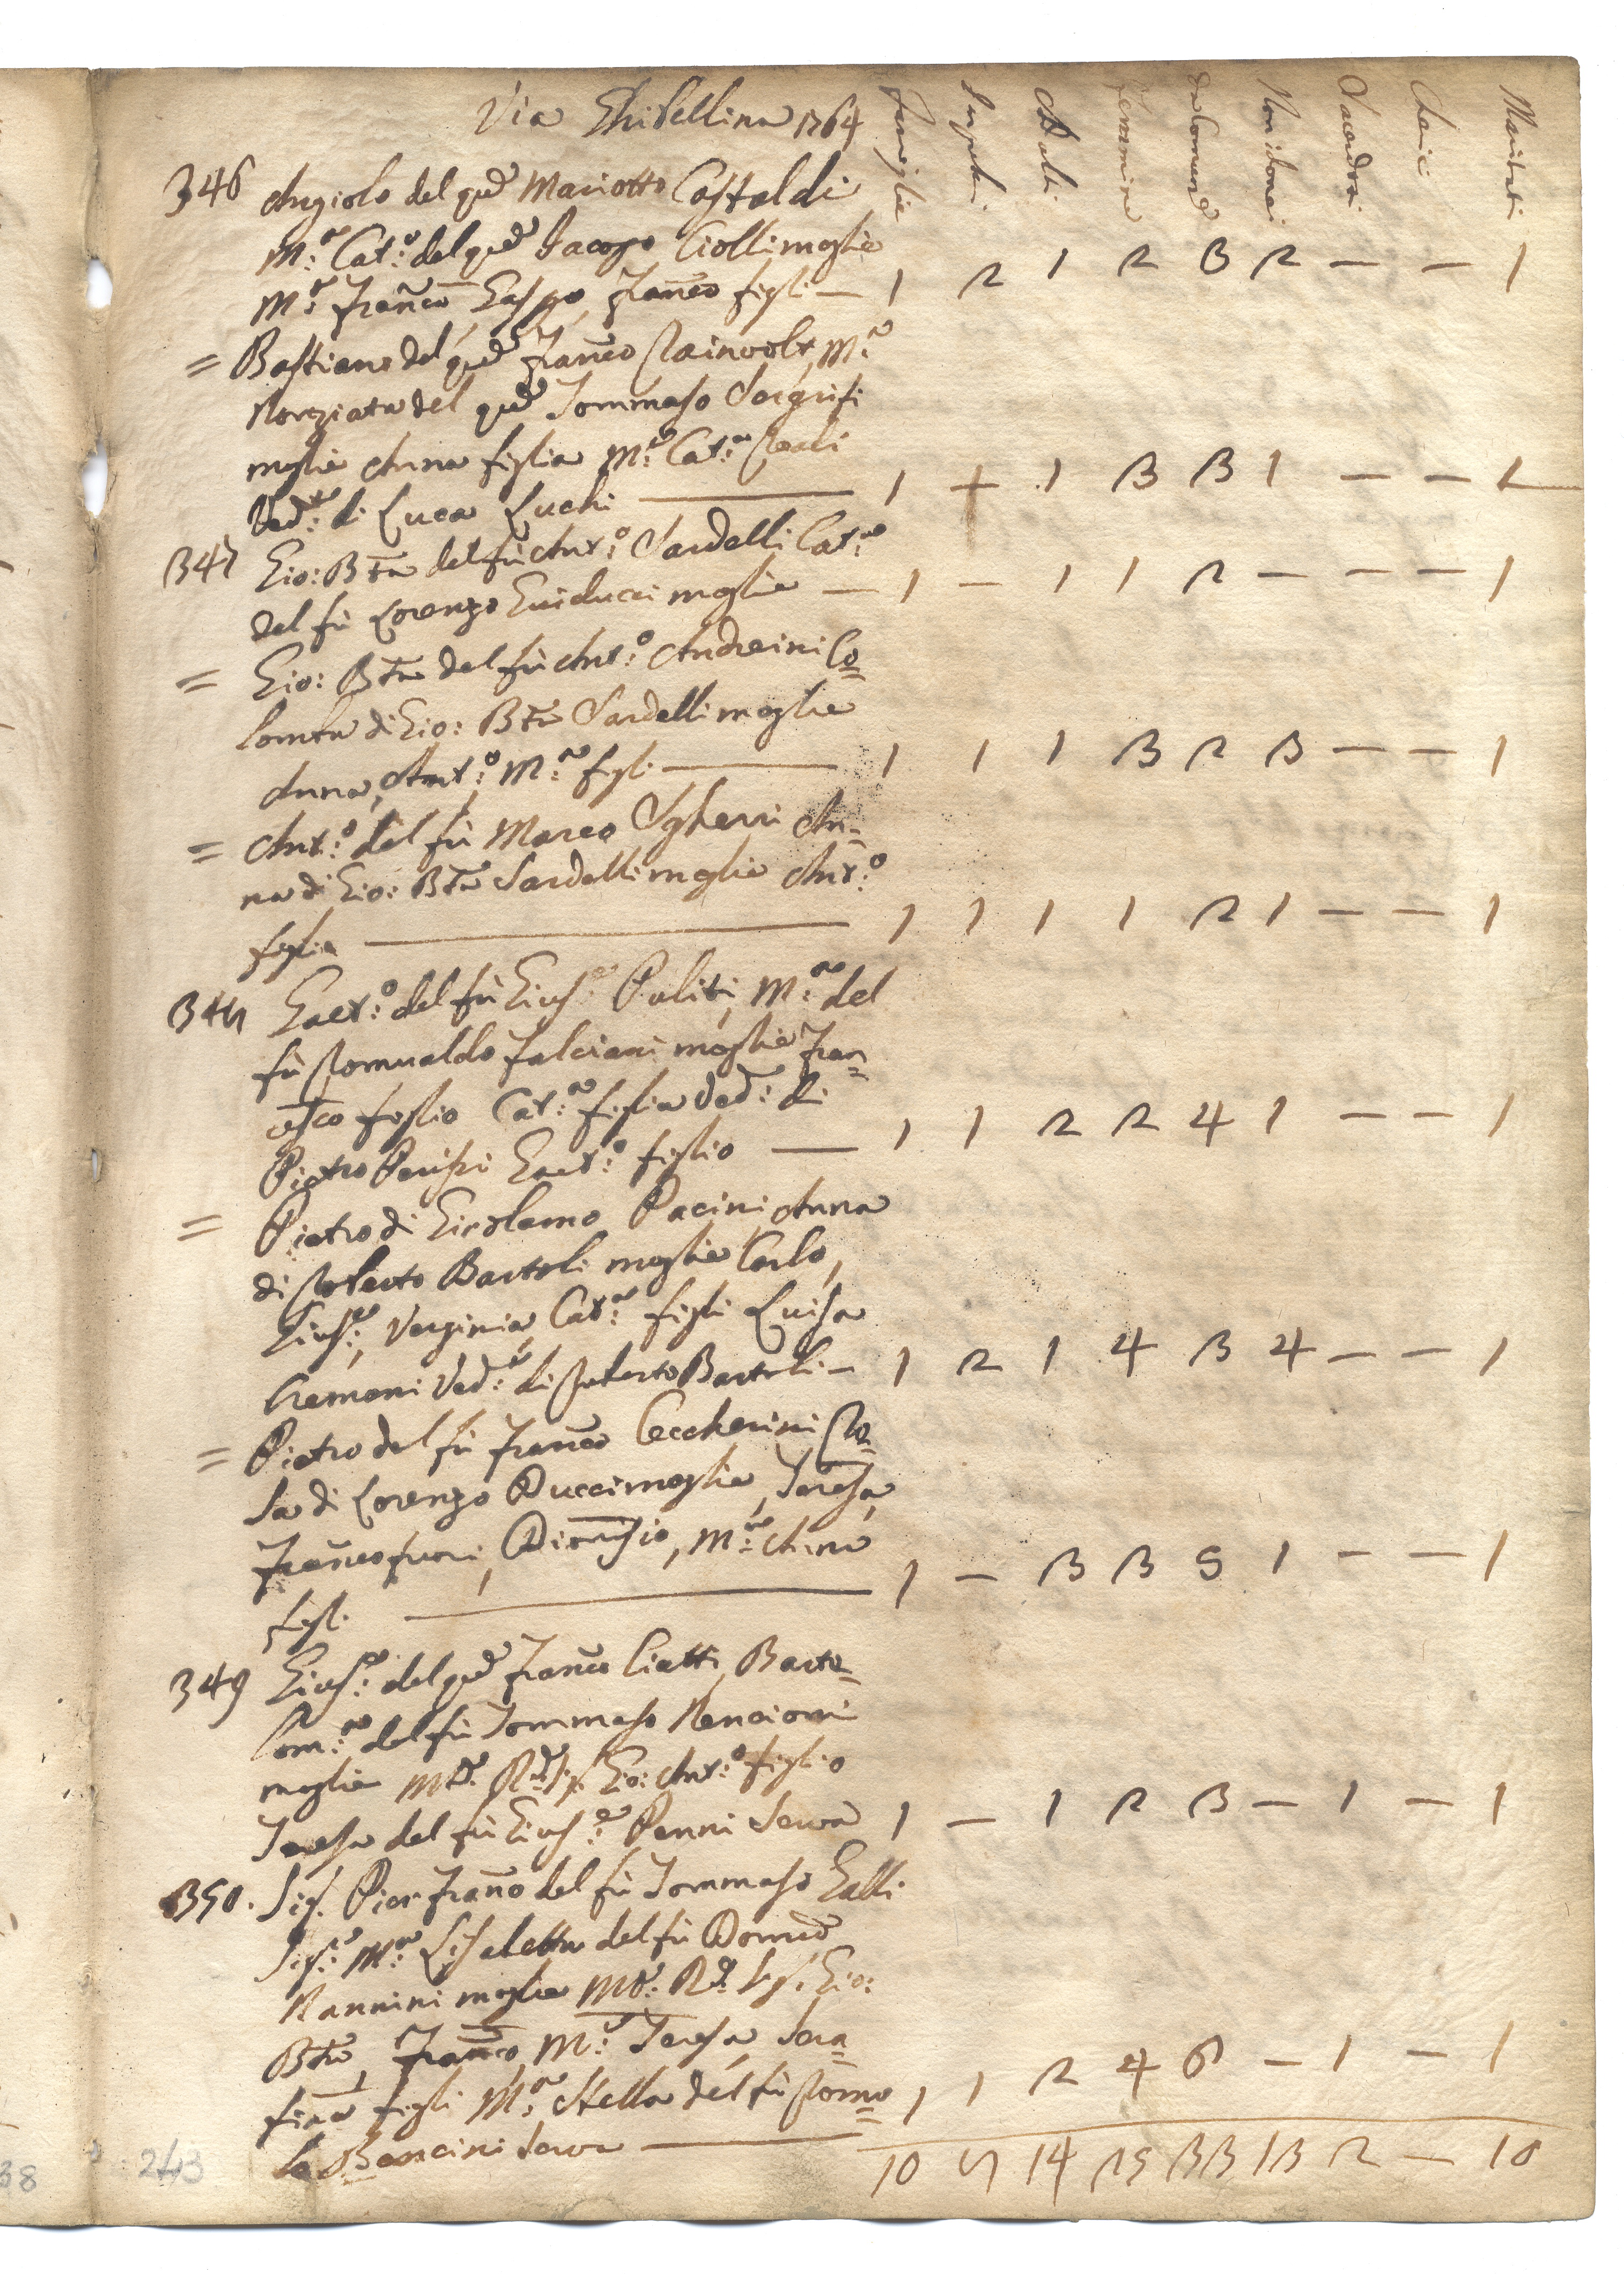 Via Ghibellina 1764
Famiglie
Maschi
Femmine
da Comune
Non idonei
Sacerdoti
Cherici
Maritati
346 Angiolo del qud Mariotto Castaldi
M:a Cat:a del qud Jacopo Ciolli moglie
M:a Franco Gaspo Franco figli — 1 2 1 2 3 2 — — 1
= Bastiano del qud Franco M:a
Nonziata del qud Tommaso
moglie Anna figlia M:a Cat:a
Ved:a di Luca Luchi — 1 + 1 3 3 1 — — 1
347 Gio: Bta del fù Ant:o Sardelli Cat:a
del fù Lorenzo Guiducci moglie — 1 — 1 1 2 — — — 1
= Gio: Bta del fù Ant:o Andreini Co=
lomba di Gio: Bta Sardelli moglie
Anna, Ant:o, M:a figli — 1 1 1 3 2 3 — — 1
= Ant:o del fù Marco Sgherri An=
na di Gio: Bta Sardelli moglie Ant:o
figlio — 1 1 1 1 2 1 — — 1
348 Gaet:o del fù Gius:e Puliti, M:a del
fù Romualdo Falciani moglie Fran=
cesco figlio Cat:a figlia Ved: di
Pietro Gaet:o figlio — 1 1 2 2 4 1 — — 1
= Pietro di Girolamo Pacini, Anna
di Roberto Bartoli moglie Carlo,
Gius:e, Verginia, Cat:a figli Luisa
Cremoni Ved:a di Roberto Bartoli — 1 2 1 4 3 4 — — 1
= Pietro del fù Franco Ceccherini Ro=
sa di Lorenzo Pucci moglie, Teresa,
Franco fuori, Dionisio, M:a Anna
figli — 1 — 3 3 5 1 — — 1
349 Gius:e del qud Franco Ciatti, Barto=
lom:a del fù Tommaso Nencioni
moglie Mto: Rdo Sig. Gio: Ant:o figlio
Teresa del fù Gius:e Penni Serva 1 — 1 2 3 — 1 — 1
350. Sig. Pier Franco del fù Tommaso Galli
Sig:a M:a Lisabetta del fù Domco
Nannini moglie Mto: Rdo Sig. Gio:
Bta, Franco, M:a Teresa, Sera=
fina figli M:a Stella del fù Romo=
lo Bencini Serva — 1 1 2 4 6 — 1 — 1
10 14 25 33 13 2 — 10
243